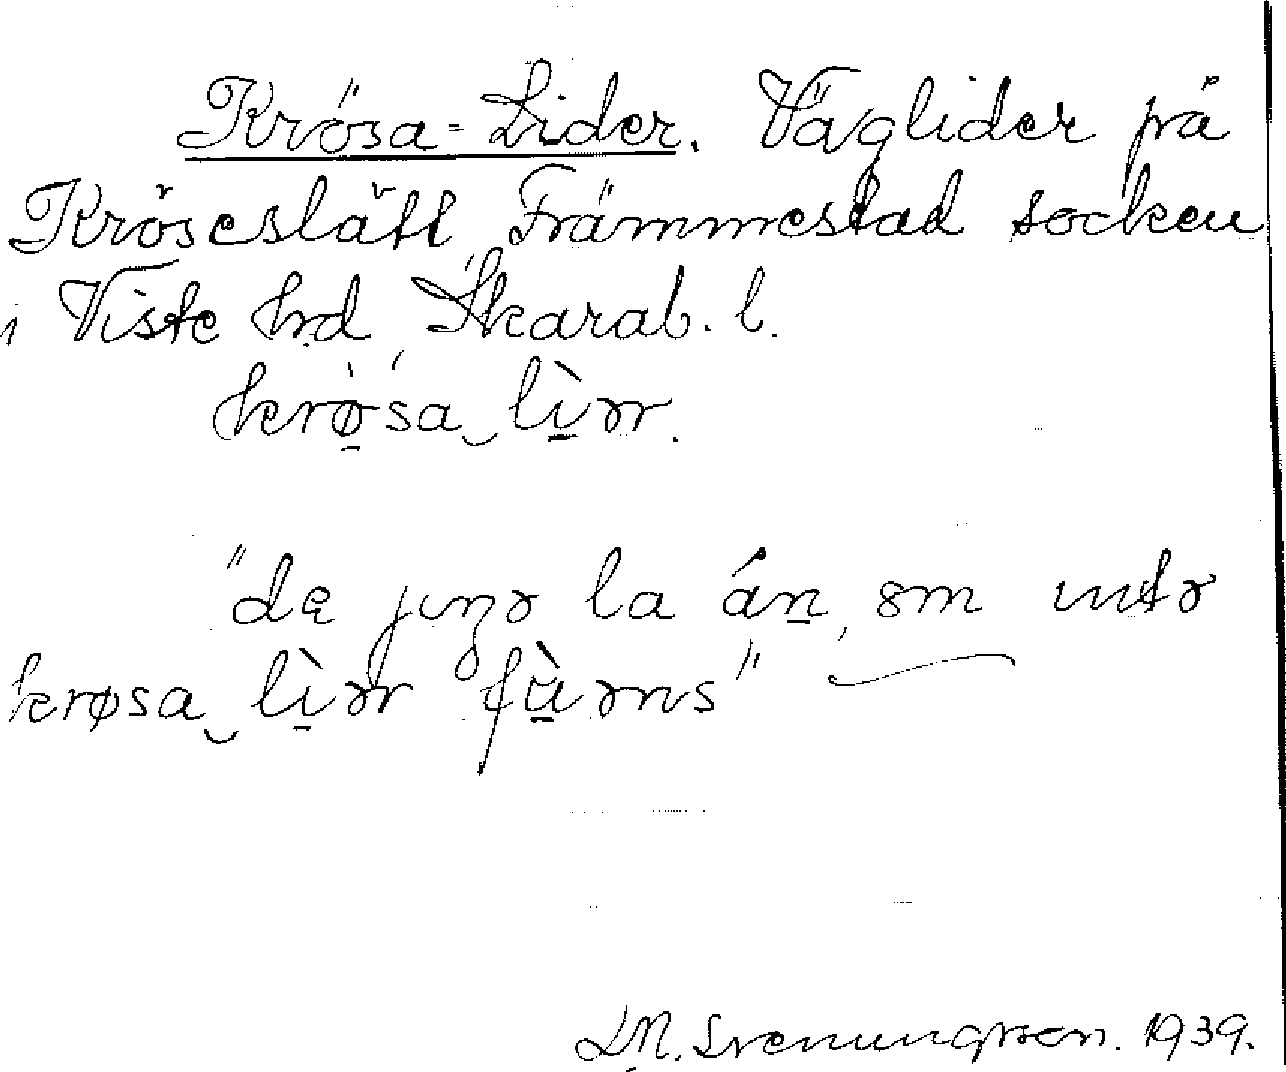 Krösa-Lider. Väglider på
Kröseslätt, Främmestad socken
i Viste hrd, Skarab. l.
krø̀sa lìər.
"dę jıŋə la án, əm ıntə
krøsa lìər fùəns"
L.N. Svenungsson. 1939.